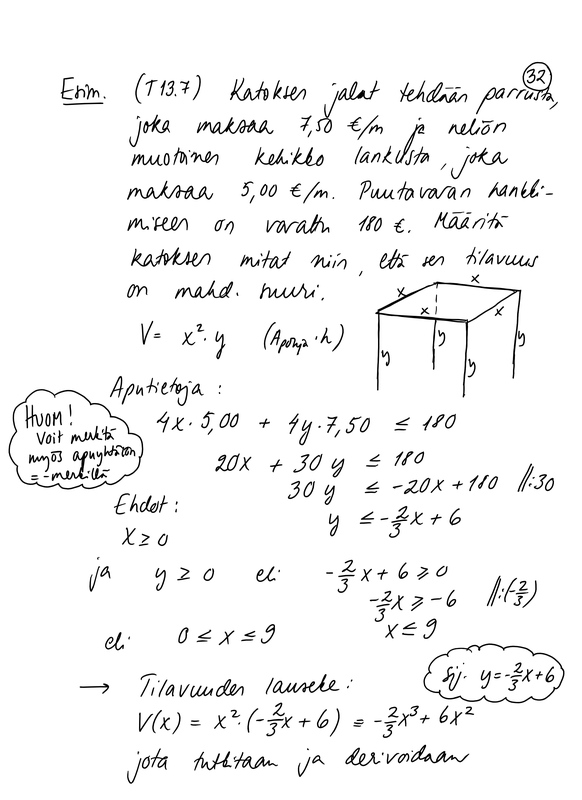 32
Esim. (T13.7) Katoksen jalat tehdään parrusta,
joka maksaa 7,50 €/m ja neliön
muotoinen kehikko lankusta, joka
maksaa 5,00 €/m. Puutavaran hankki-
miseen on varattu 180 €. Määritä
katoksen mitat niin, että sen tilavuus
on mahd. suuri.
x
x
x
x
y
y
y
y
V = x²·y (Apohja·h)
Aputietoja:
4x·5,00 + 4y·7,50 ≤ 180
HUOM!
Voit merkitä
myös apuyhtälön
=-merkillä
20x + 30y ≤ 180
30y ≤ -20x + 180 ||:30
y ≤ -2/3x + 6
Ehdot:
x ≥ 0
ja y ≥ 0 eli -2/3x + 6 ≥ 0
-2/3x ≥ -6 ||:(-2/3)
x ≤ 9
eli 0 ≤ x ≤ 9
Sij. y=-2/3x+6
→ Tilavuuden lauseke:
V(x) = x²·(-2/3x + 6) = -2/3x³ + 6x²
jota tutkitaan ja derivoidaan